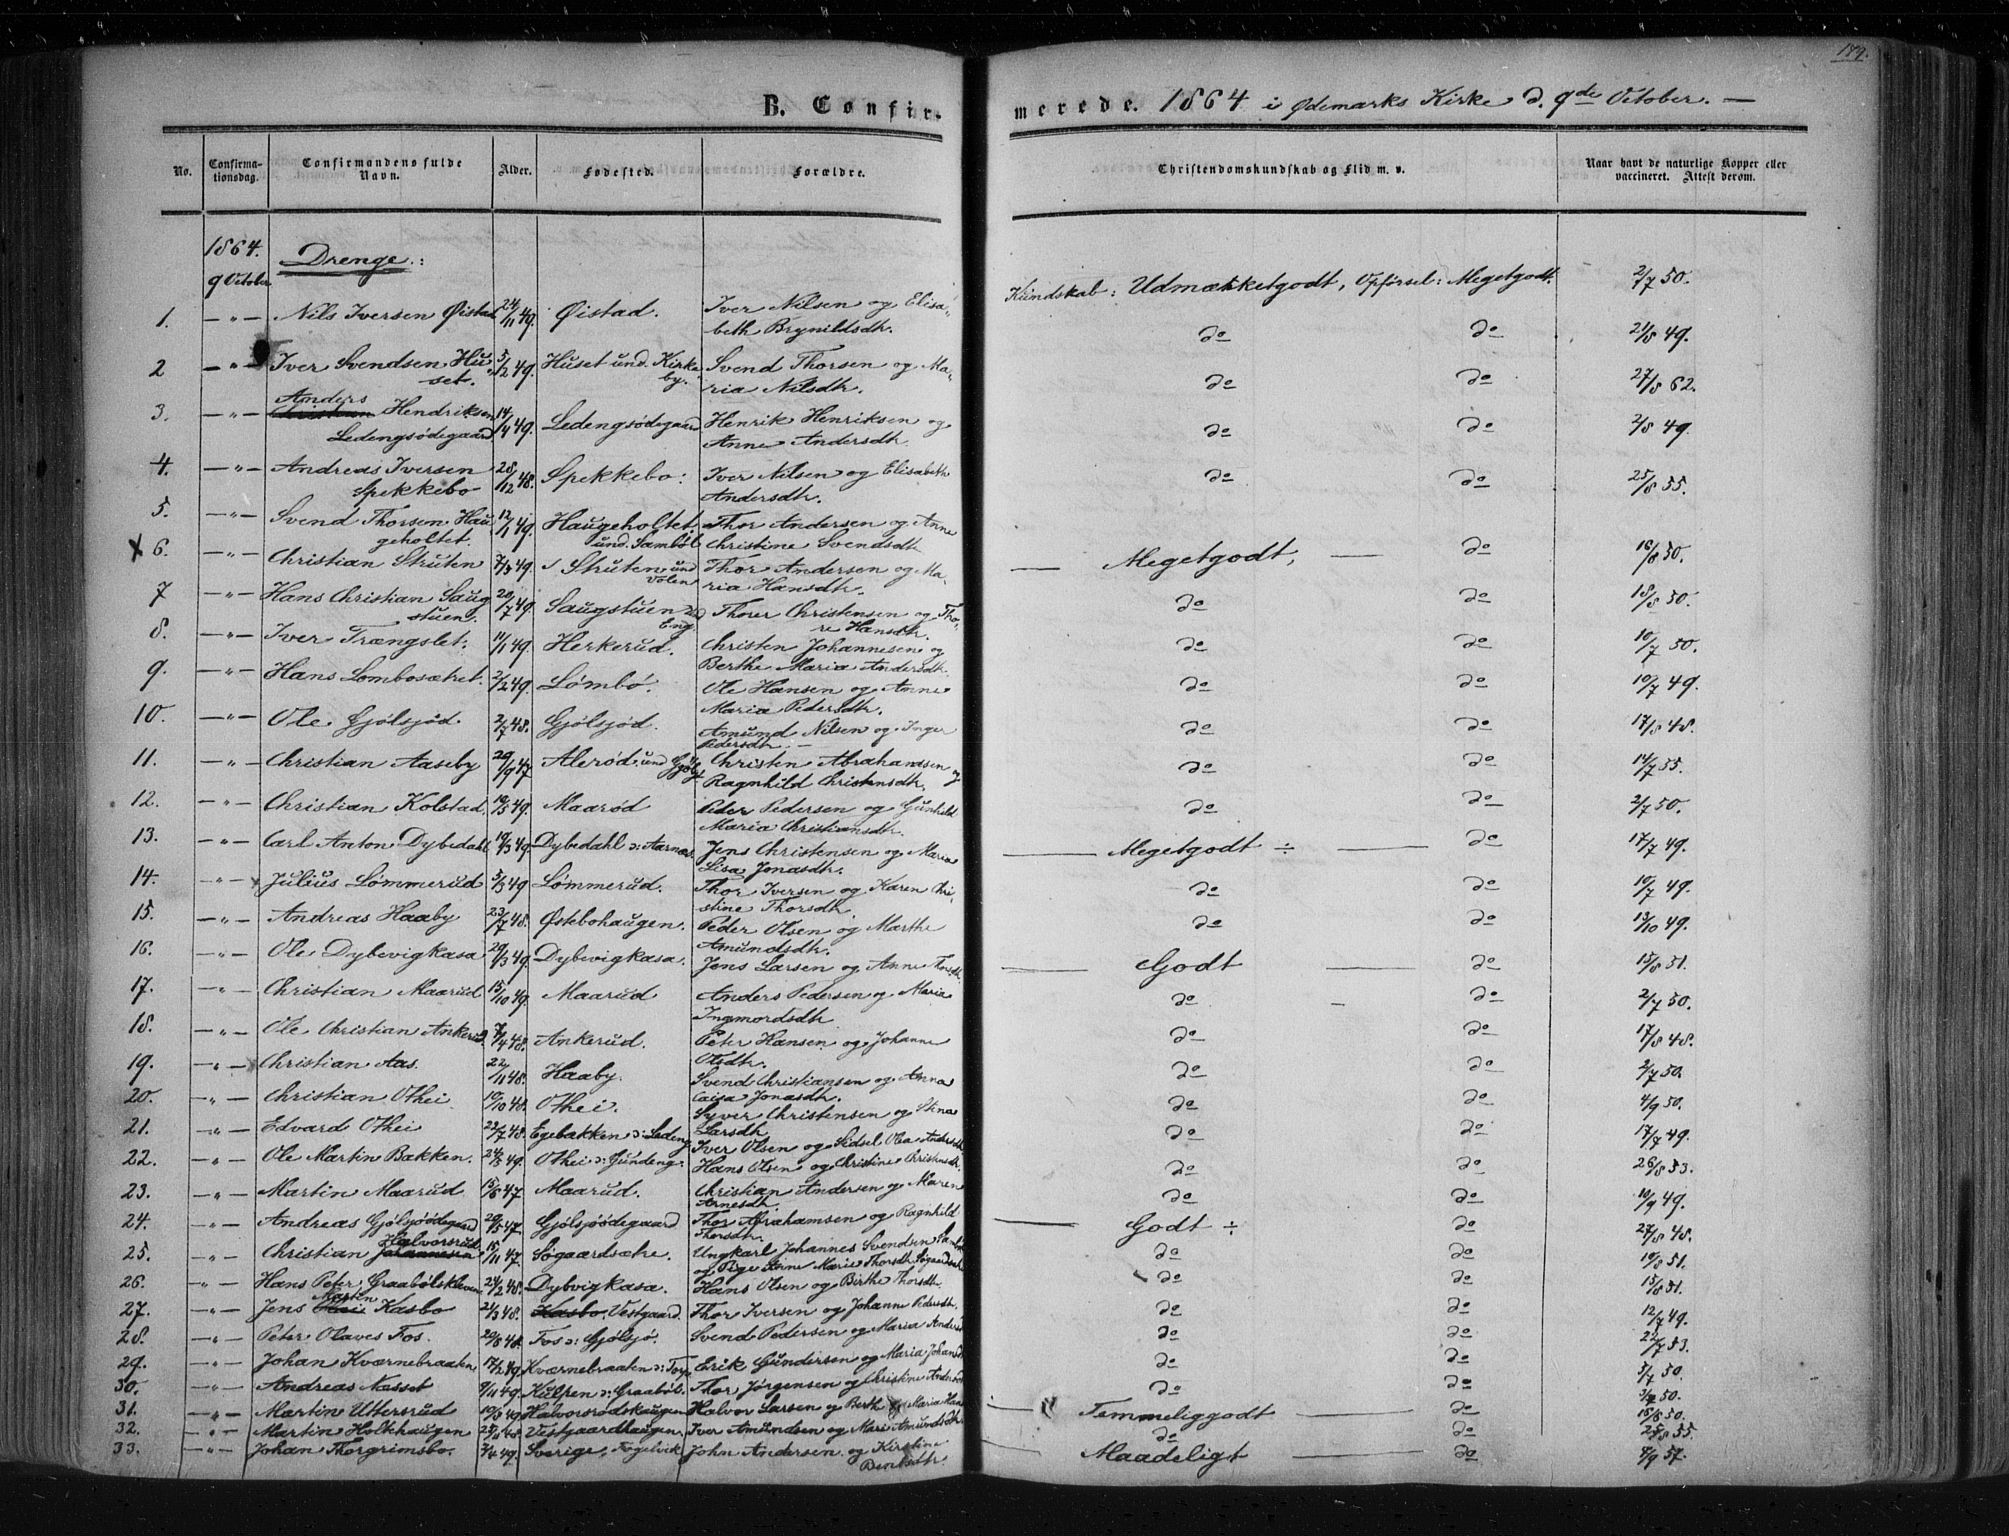 189.
B. Confirmerede. 1864 i Ødemarks Kirke d. 9de October. —
No. Confirmationsdag. Confirmandens fulde Navn. Alder. Fødested. Forældre. Christendomskundskab og Flid m. v. Naar havt de naturlige Kopper eller vaccineret. Attest derom.
1864.
9 October Drenge:
1. —"— Nils Iversen Øistad 24/11 49. Øistad. Iver Nilsen og Elisabeth Brynildsdtr. Kundskab: Udmærketgodt, Opførsel: Megetgodt. 2/7 50.
2 —"— Iver Svendsen Huset. 5/2 49. Huset und. Kirkeby. Svend Thorsen og Maria Nilsdtr. do do 21/8 49.
3. —"— Anders Hendriksen Ledengsødegaard 14/4 49. Ledengsødegaard Henrik Henriksen og Anne Andersdtr. do do 27/8 62.
4. —"— Andreas Iversen Spekkebo 28/12 48. Spekkebo: Iver Nilsen og Elisabeth Andersdtr. do do 2/8 49.
5. —"— Svend Thorsen Haugeholtet. 12/1 49. Haugeholtet und. Sambøl Thor Andersen og Anne Christine Svendsdtr. do do 25/8 55.
x 6. —"— Christian Struten 7/3 49. Struten und Volen Thor Andersen og Maria Hansdtr. — Megetgodt, — do 16/8 50.
7 —"— Hans Christian Saugstuen. 20/7 49. Saugstuen und Eng. Thorer Christensen og Thore Hansdtr. do do 18/8 50.
8. —"— Iver Trængslet. 11/1 49. Herkerud. Christen Johannesen og Berthe Maria Andersdtr. do do 10/7 50.
9. —"— Hans Lombosætret. 2/2 49. Lømbø. Ole Hansen og Anne Maria Pedersdtr. do do 10/7 49.
10. —"— Ole Gjølsjød. 2/7 48. Gjølsjød. Amund Nilsen og Inger Pedersdtr. — do do 17/8 48.
11. —"— Christian Aaseby 29/9 47 Alerød und Gjøls. Christen Abrahamsen og Ragnhild Christensdtr. do do 14/7 55.
12. —"— Christian Kolstad 10/3 49. Maarød Peder Pedersen og Gunhild Maria Christiansdtr. do do 2/7 50.
13. —"— Carl Anton Dybedahl 10/3 49. Dybedahl : Aarnæs. Jens Christensen og Maria Lisa Jonasdtr. — Megetgodt ÷ — do 17/7 49.
14. —"— Julius Lømmerud 5/3 49 Lømmerud. Thor Iversen og Karen Christine Thorsdtr. do do 10/7 49.
15. —"— Andreas Haaby 23/7 48. Østebohaugen. Peder Olsen og Marthe Amundsdtr. do do 13/10 49.
16. —"— Ole Dybevigkasa 29/3 49. Dybevigkasa. Jens Larsen og Anne Thorsdtr. — Godt — do 15/8 51.
17. —"— Christian Maarud 15/10 49. Maarud Anders Pedersen og Maria Ingmordsdtr. do — do 2/7 50.
18. —"— Ole Christian Ankerud. 7/4 48. Ankerud. Peter Hansen og Johanne Olsdtr. do do 17/8 48.
19. —"— Christian Aas. 22/11 48. Haaby. Svend Christiansen og Anna Caisa Jonasdtr. do do 2/7 50.
20. —"— Christian Othei 10/10 48. Othei. Syver Christensen og Stina Larsdtr. do do 4/9 50.
21. —"— Edvard Othei 22/7 48. Egebakken : Ledeng Iver Olsen og Sidsel Olea Andersdtr. do do 17/7 49.
22. —"— Ole Martin Bakken. 24/3 49. Othei : Gundeng. Hans Olsen og Christine Christensdtr. do do 26/8 53.
23. —"— Martin Maarud 15/6 47 Maarud. Christian Andersen og Maren Arnesdtr. do do 10/9 49.
24. —"— Andreas Gjølsjøødegaard 29/5 47. Gjølsjøødegaard Thor Abrahamsen og Ragnhild Thorsdtr. — Godt ÷ do 27/8 48.
25. —"— Christian Halvorsrud Johannesen 15/11 47. Søgaardsætre. Ungkarl Johannes Svendsen og Pige Stine Marie Thorsdtr. Søgaardsæt. do do 10/8 51.
26. —"— Hans Peter Graabølskleven 24/2 48. Dybvigkasa. Hans Olsen og Birthe Thorsdtr. do do 15/8 51.
27. —"— Jens Martin Kasbo 21/3 48. Kasbo. Vestgaard. Thor Iversen og Johanne Pedersdtr. do do 12/7 49.
28. —"— Peter Olaves Fos. 20/8 48. Fos : Gjølsjø. Svend Pedersen og Maria Andersdtr. do do 22/7 53.
29. —"— Johan Kværnebraaten 17/2 49. Kværnebraaten : Torp Erik Gundersen og Maria Johansdtr. do do 5/7 50.
30. —"— Andreas Næsset 9/11 49. Kulpen : Graabøl. Thor Jørgensen og Christine Andersdtr. do do 3/7 50.
31. —"— Martin Uttersrud 10/3 49 Halvorsrødshaugen Halvor Larsen og Berthe Maria Hans — Temmeliggodt — do 16/8 50.
32. —"— Martin Holthaugen Vestgaardhaugen. Iver Amundsen og Mari Amundsdtr. do do 25/8 55.
33. —"— Johan Thorgrimsbo. 3/4 49. Sverige, Fogelvik John Andersen og Kirstine Bentsdtr. — Maadeligt — do 4/9 57.